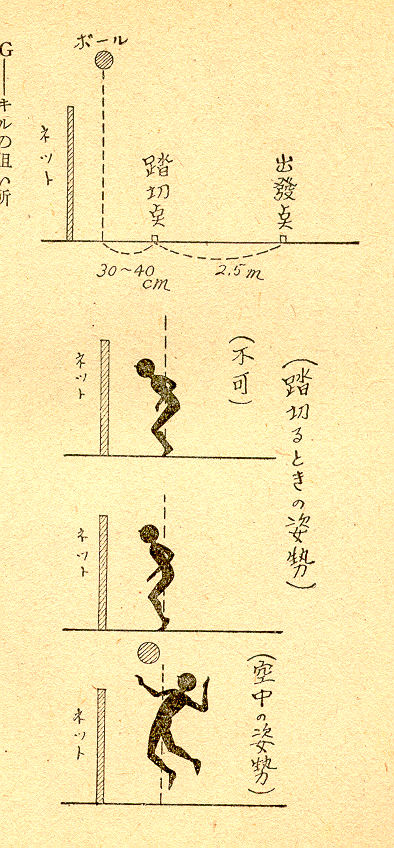 G——キルの狙い所
ボール
ネット
踏切点
出發点
30~40cm
2.5m
(踏切るときの姿勢)
(不可)
ネット
ネット
(空中の姿勢)
ネット